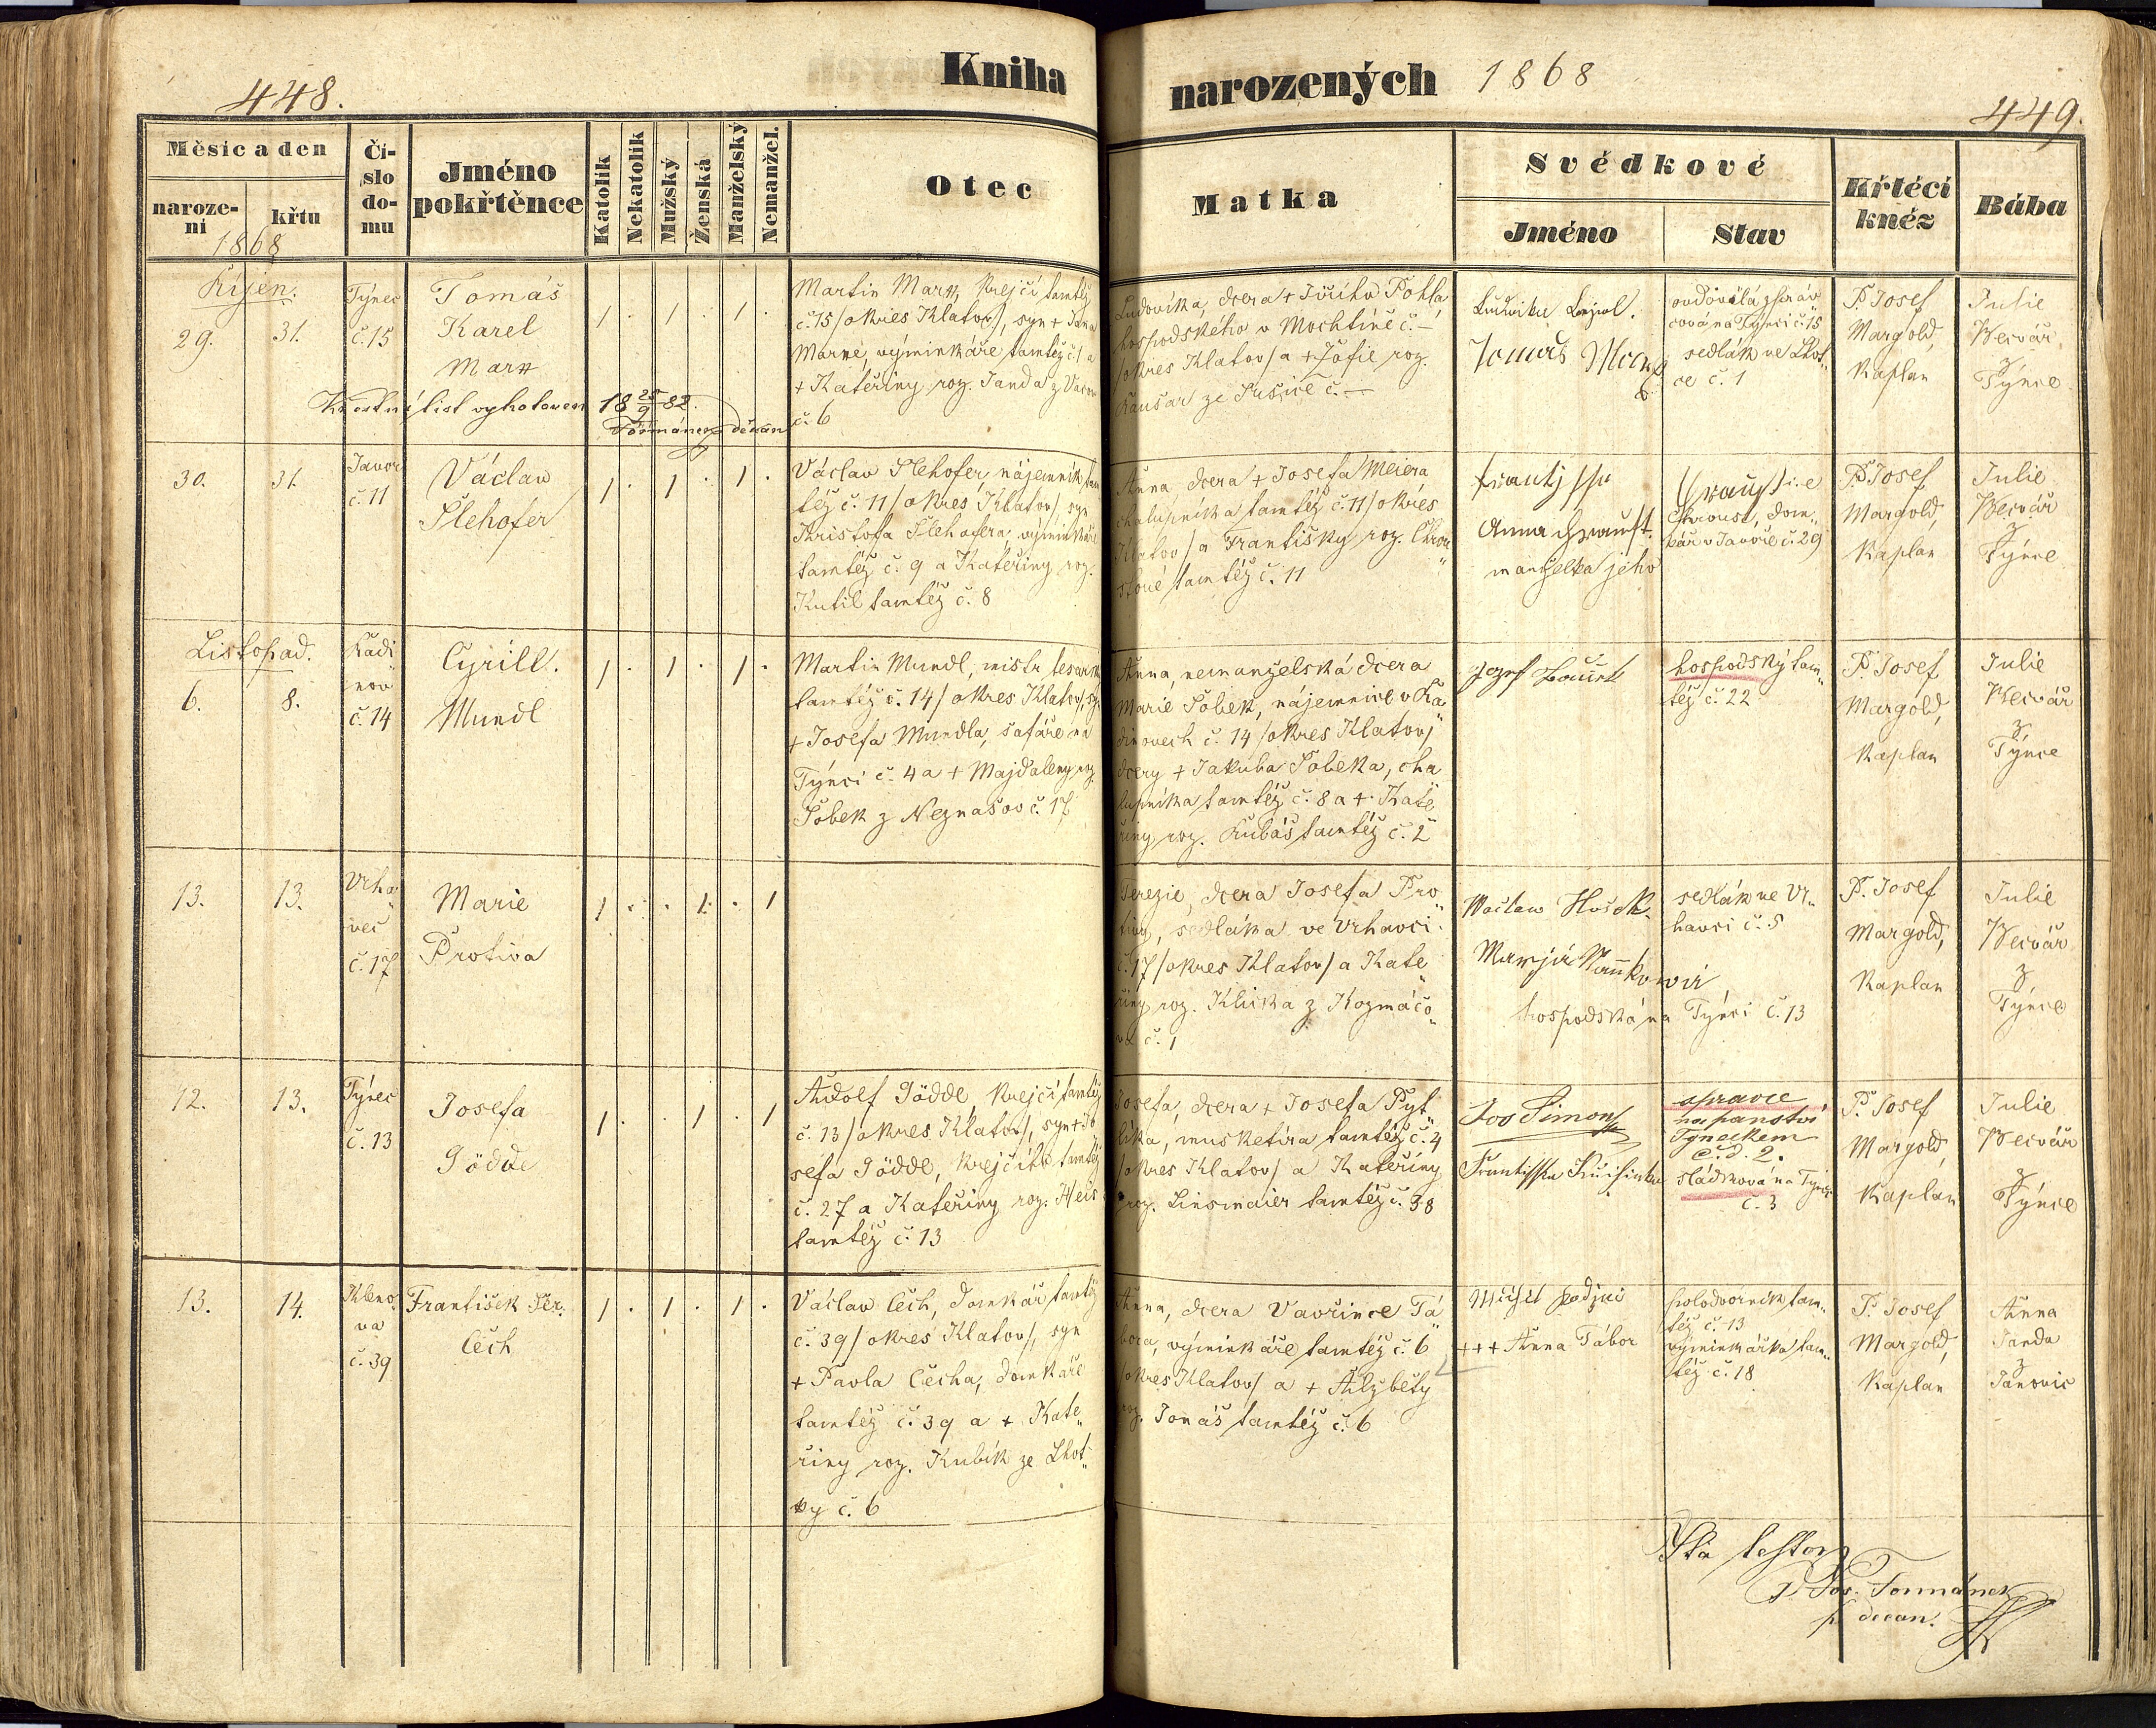 448.
Kniha
narozených 1868
449.
Měsíc a den
naroze-
ni
křtu
1868
Čí-
slo
do-
mu
Jméno
pokřtěnce
Katolík
Nekatolík
Mužský
Ženská
Manželský
Nemanžel.
Otec
Matka
Svědkové
Jméno
Stav
Křtěcí
kněz
Bába
Říjen.
29.
31.
Týnec
č. 15
Tomáš
Karel
Křestní list vyhotoven 18 25/9 82.
Formánek děkan
Martin krejčí tamtéž
č. 15 /okres Klatov/, syn + Jana
výminkáře tamtéž č. 1 a
+ Kateřiny roz. Janda z
č. 6
Ludovika, dcera +
hospodského v Mochtíně č. –
/okres Klatov/ a + Žofie roz.
ze Sušice č. –
Tomáš
ovdovělá správ
cová na Týnci č. 15
sedlák ve Lhot„
ce č. 1
P. Josef
Margold,
Kaplan
Julie
Wecvář
z
Týnce
30.
31.
Javor
č. 11
Václav
Šlehofer
Václav Šlehofer, nájemník tam
též č. 11 /okres Klatov/, syn
Kristofa Šlehofera, výminkáře
tamtéž č. 9 a Kateřiny roz.
Kutil tamtéž č. 8
Anna, dcera + Josefa Meiera
chalupníka tamtéž č. 11 /okres
Klatov/ a Františky roz. Chrou
stové tamtéž č. 11
Anna
manželka jeho
Chroust, dom„
kář v Javoře č. 29
P. Josef
Margold,
Kaplan
Julie
Wecvář
z
Týnce
Listopad.
6.
8.
Kadi
nov
č. 14
Cyrill.
Mundl
Martin Mundl, mistr tesařský
tamtéž č. 14 /okres Klatov/, syn
+ Josefa Mundla, šafáře na
Týnci č. 4 a + Majdaleny roz.
Šobek z Neznašov č. 17
Anna, nemanželská dcera
Marie Šobek, nájemnice v Ka
dinovech č. 14 /okres Klatov/
dcery + Jakuba Šobeka, cha
lupníka tamtéž č. 8 a + Kate
řiny roz. Kubáš tamtéž č. 2
Jozef
hospodský tam„
též č. 22
P. Josef
Margold,
Kaplan
Julie
Wecvář
z
Týnce
13.
13.
Vrha
vec
č. 17
Marie
Protiva
Terezie, dcera Josefa Pro„
tivy, sedláka ve Vrhavci
č. 17 /okres Klatov/ a Kate
řiny roz. Klička z Kozmáčo„
va č. 1
Waclaw Hošek.
hospodská na Týnci č. 13
sedlák ve Vr„
havci č. 5
P. Josef
Margold,
Kaplan
Julie
Wecvář
z
Týnce
12.
13.
Týnec
č. 13
Josefa
Gödde
Adolf Gödde, krejčí tamtéž
č. 13 /okres Klatov/, syn + Jo
sefa Gödde, krejčího tamtéž
č. 27 a Kateřiny roz. Heis
tamtéž č. 13
Josefa, dcera + Josefa Pyt„
líka, musketíra tamtéž č. 4
/okres Klatov/ a Kateřiny
roz. Linsmaier tamtéž č. 38
Ivo Simon
správce
na panství
Týneckém
č. d. 2.
sládková na Týnci
č. 3
P. Josef
Margold,
Kaplan
Julie
Wecvář
z
Týnce
13.
14.
Kleno
va
č. 39
František Ser.
Čech
Václav Čech, domkář tamtéž
č. 39 /okres Klatov/, syn
+ Pavla Čecha, domkáře
tamtéž č. 39 a + Kate„
řiny roz. Kubík ze Lhot„
ky č. 6
Anna, dcera Vavřince Tá„
bora, výminkáře tamtéž č. 6
/okres Klatov/ a + Alžběty
roz. Jonáš tamtéž č. 6
+++ Anna Tábor
polodvorník tam„
též č. 13
výminkářka tam„
též č. 18
P. Josef
Margold,
Kaplan
Anna
Janda
z
Janovic
Ita testor
P. Jos. Formánek
p. decan.